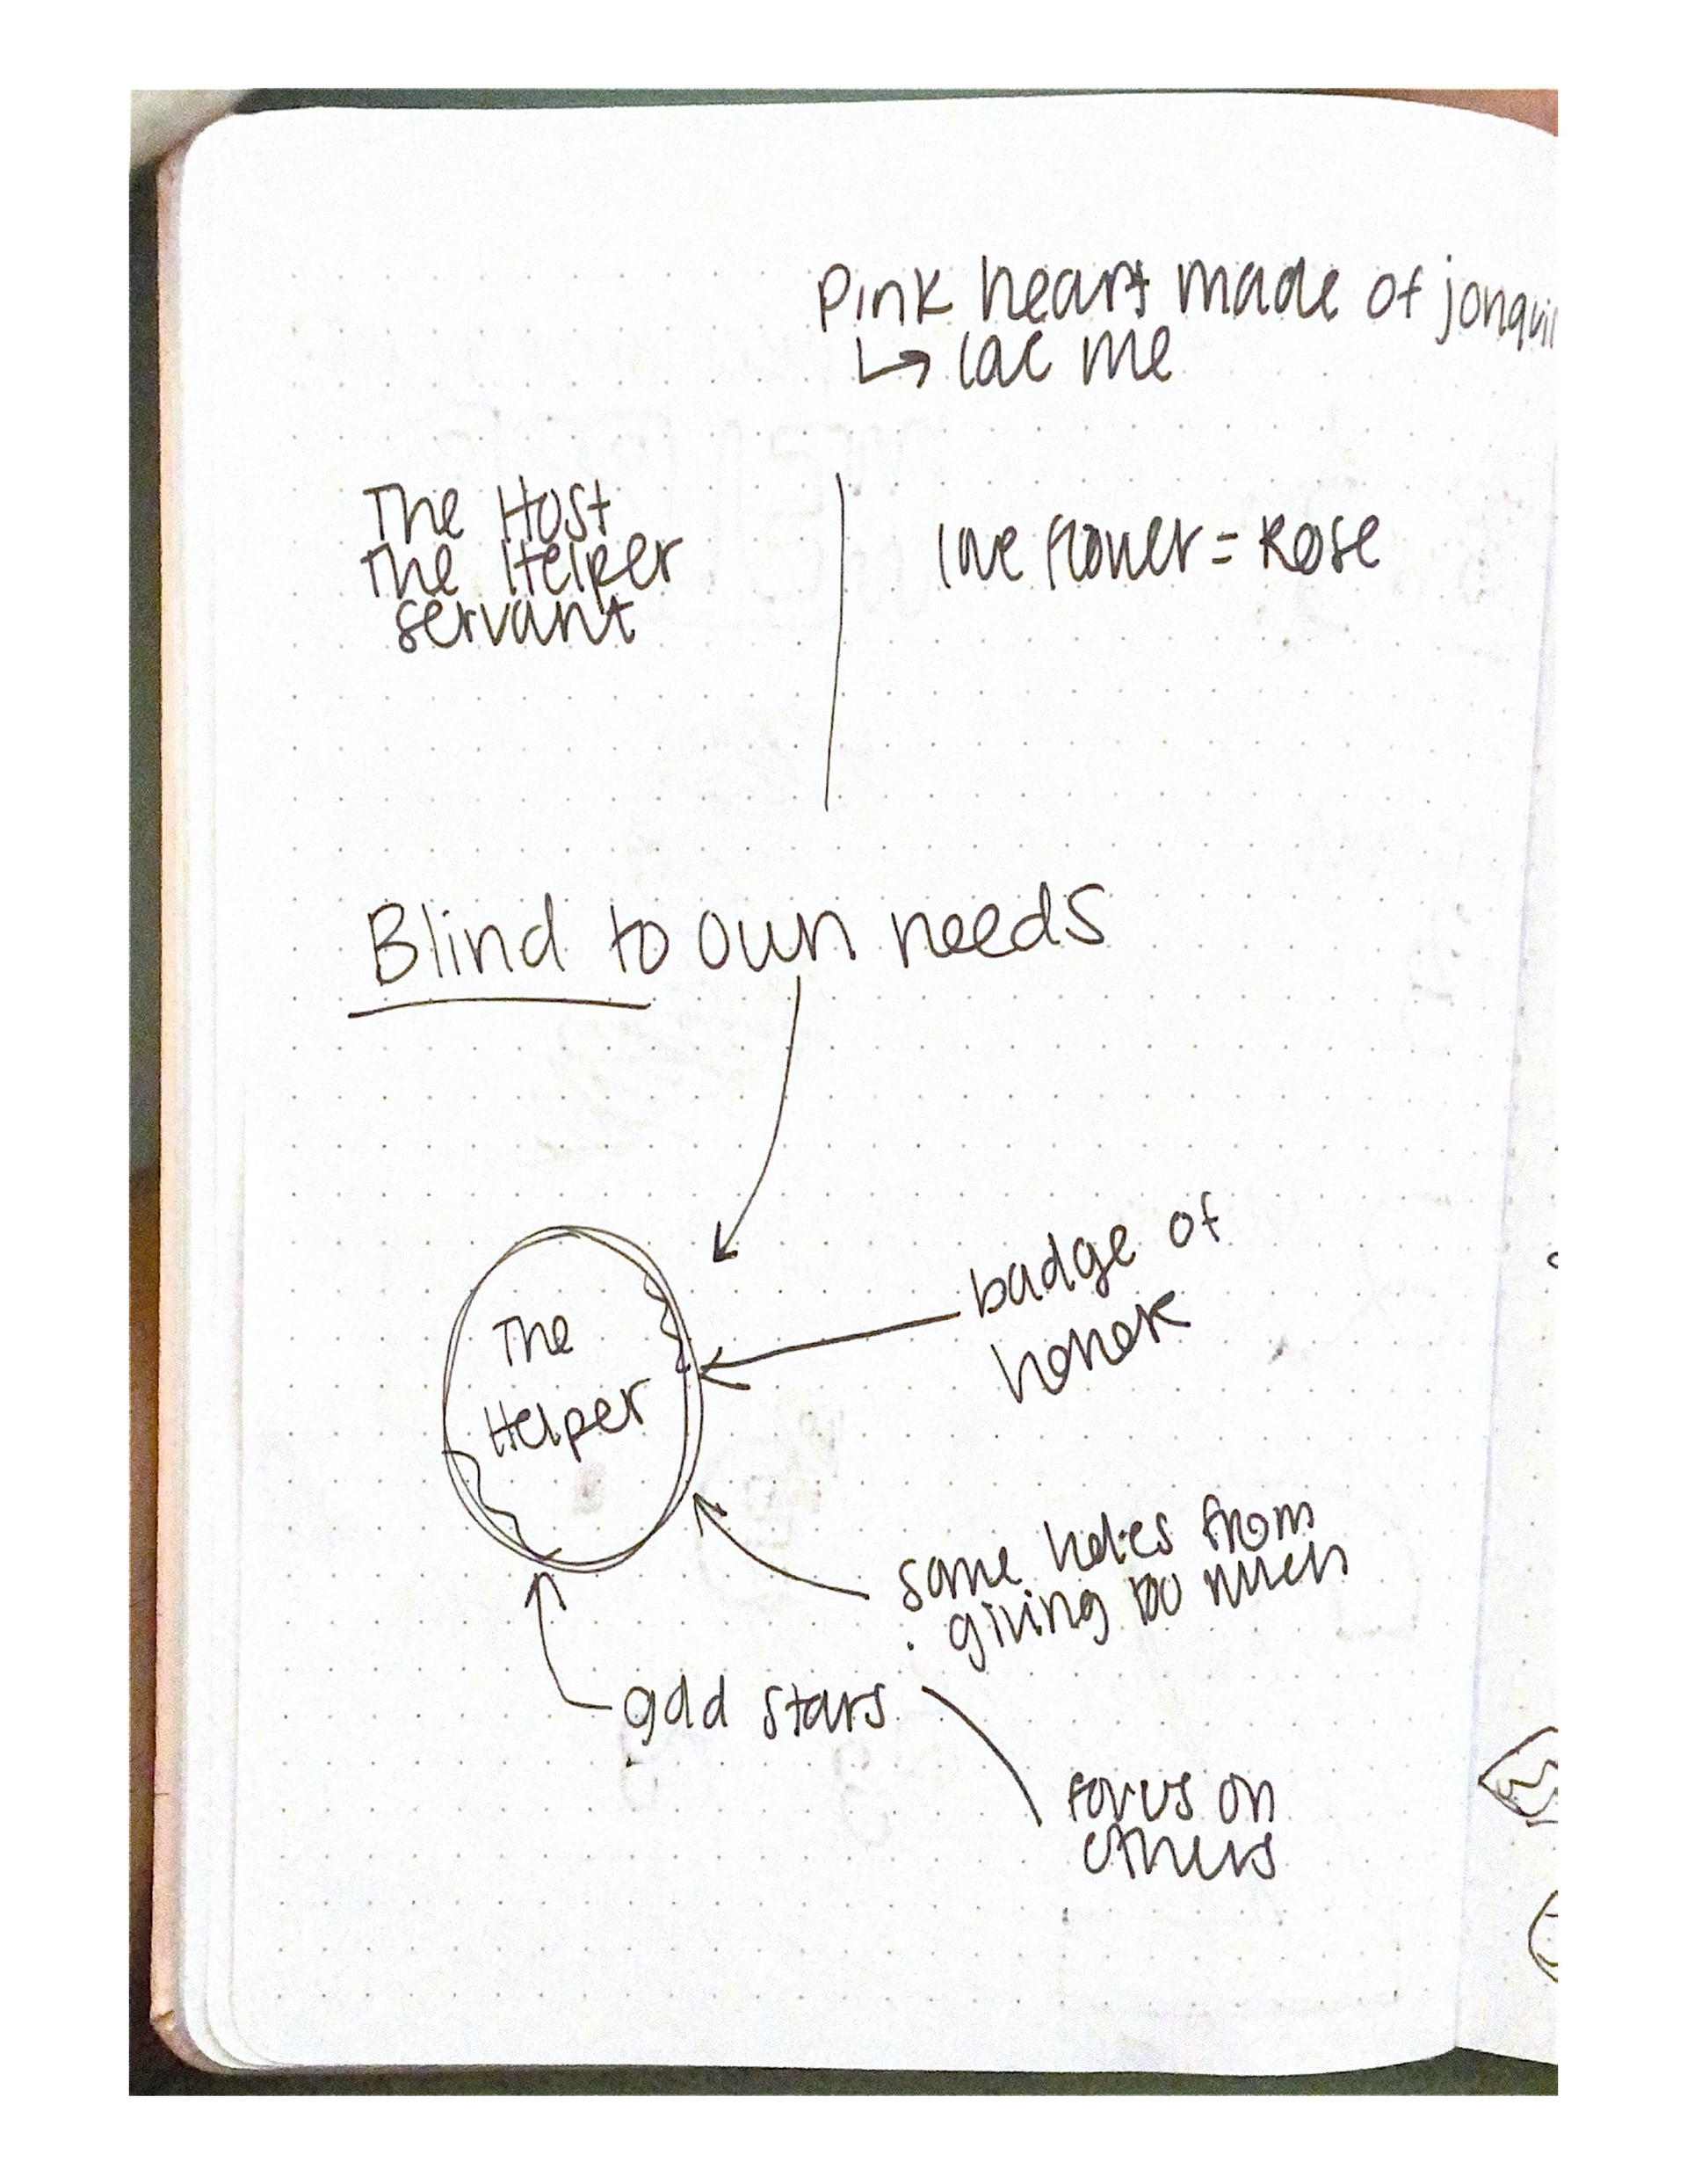 Pink heart made of jonqui
love flower = Rose
The Host
The Helper
servant
Blind to own needs
The
Helper
badge of
honor
some holes from
giving too much
gold stars
focus on
others